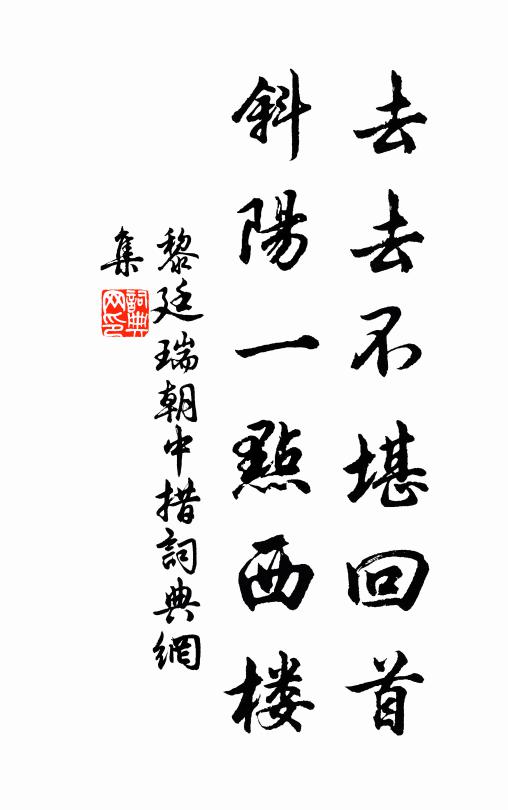 去去不堪回首
斜陽一點西楼
黎廷瑞朝中措詞典網
集
詞典网印